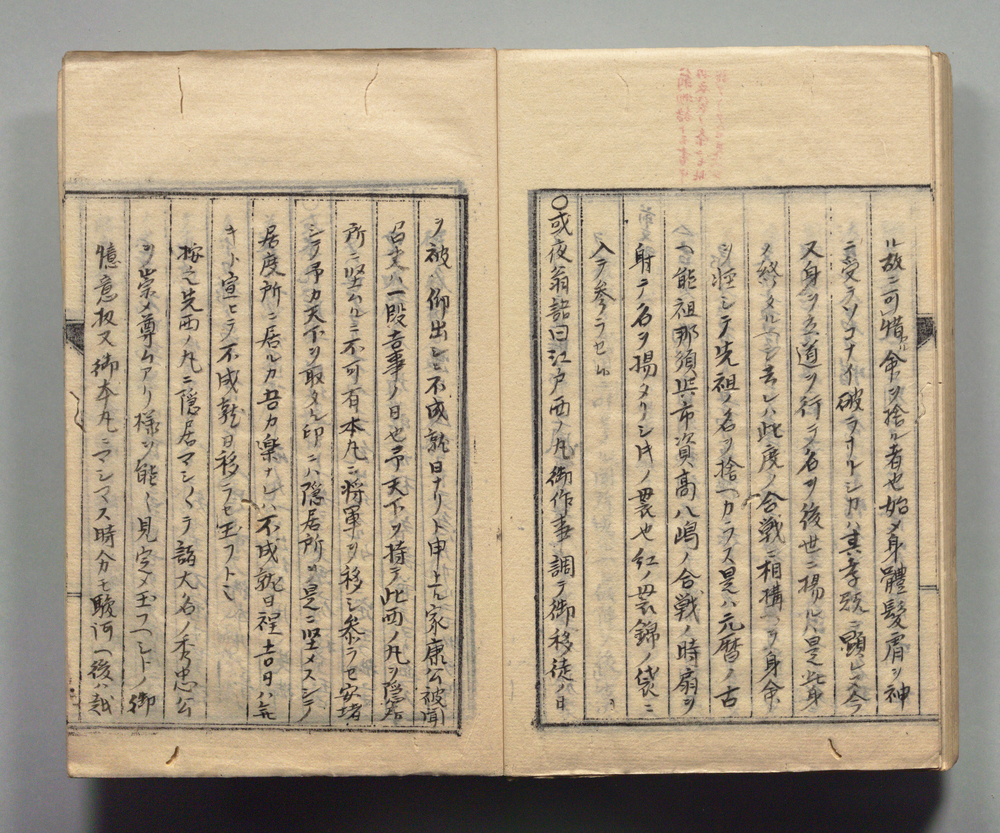 ル故ニ可惜命ヲ捨ル者也始メ身體髪膚ヲ神
ニ受テソコナイ破ラナリシカハ其孝頭ニ顕レス今
又身ヲ立道ヲ行テ名ヲ後世ニ揚ル是此身
メ終タルヘシ去レハ此度ノ合戦ニ相構ヘテ身命
ヲ惜シテ先祖ノ名ヲ捨ヘカラス是ハ元暦ノ古
ヘ能祖那須與市資高八嶋ノ合戦ノ時扇ヲ
射テ名ヲ揚タリシ時ノ畏也紅ノ畏錦ノ袋ニ
入テ参ラセル
〇或夜翁語曰江戸西ノ丸御作事調テ御移徒ノ日
ヲ被仰出シニ不成就日ナリト申上ル家康公被聞
召又ハ一段吉事ノ日也予天下ヲ持テ此西ノ丸ヲ隠居
所ニ堅ハルニ不可有本丸ニ将軍ヲ移シ参ラセ安堵
シテ予カ天下ヲ取タル印ニハ隠居所ヲ是ニ堅メスシテ
居度所ニ居ルカ吾カ棄ナレハ不成就日程吉日ハ無
キト宣ヒテ不成就日移ラセ玉フト也
按之先西ノ丸ニ隠居マシ〱テ諸大名ノ秀忠公
ヲ崇メ尊ムアリ様ヲ能ク見定メ玉フヘシトノ御
憶意扨又御本丸ニマシマス時分モ駿河ヘ後ハ越